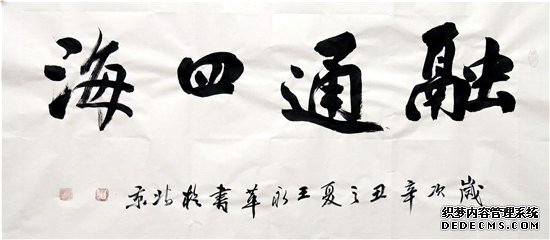 融通四海
岁次辛丑之夏王永革书于北京
织梦内容管理系统
DEDECMS.COM